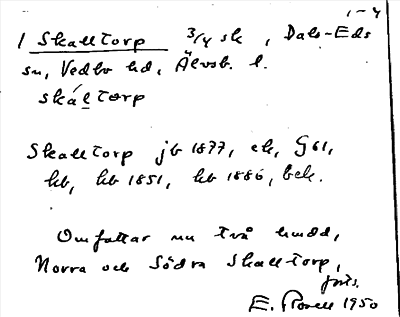 1-4
1 Skalltorp 3/4 sk, Dals-Eds
sn, Vedbo hd, Älvsb. l.
skál torp
Skalltorp jb 1877, ek, G61,
hb, kb 1851, kb 1886, bek.
Omfattar nu två hmdd,
Norra och Södra Skalltorp,
E. 1950